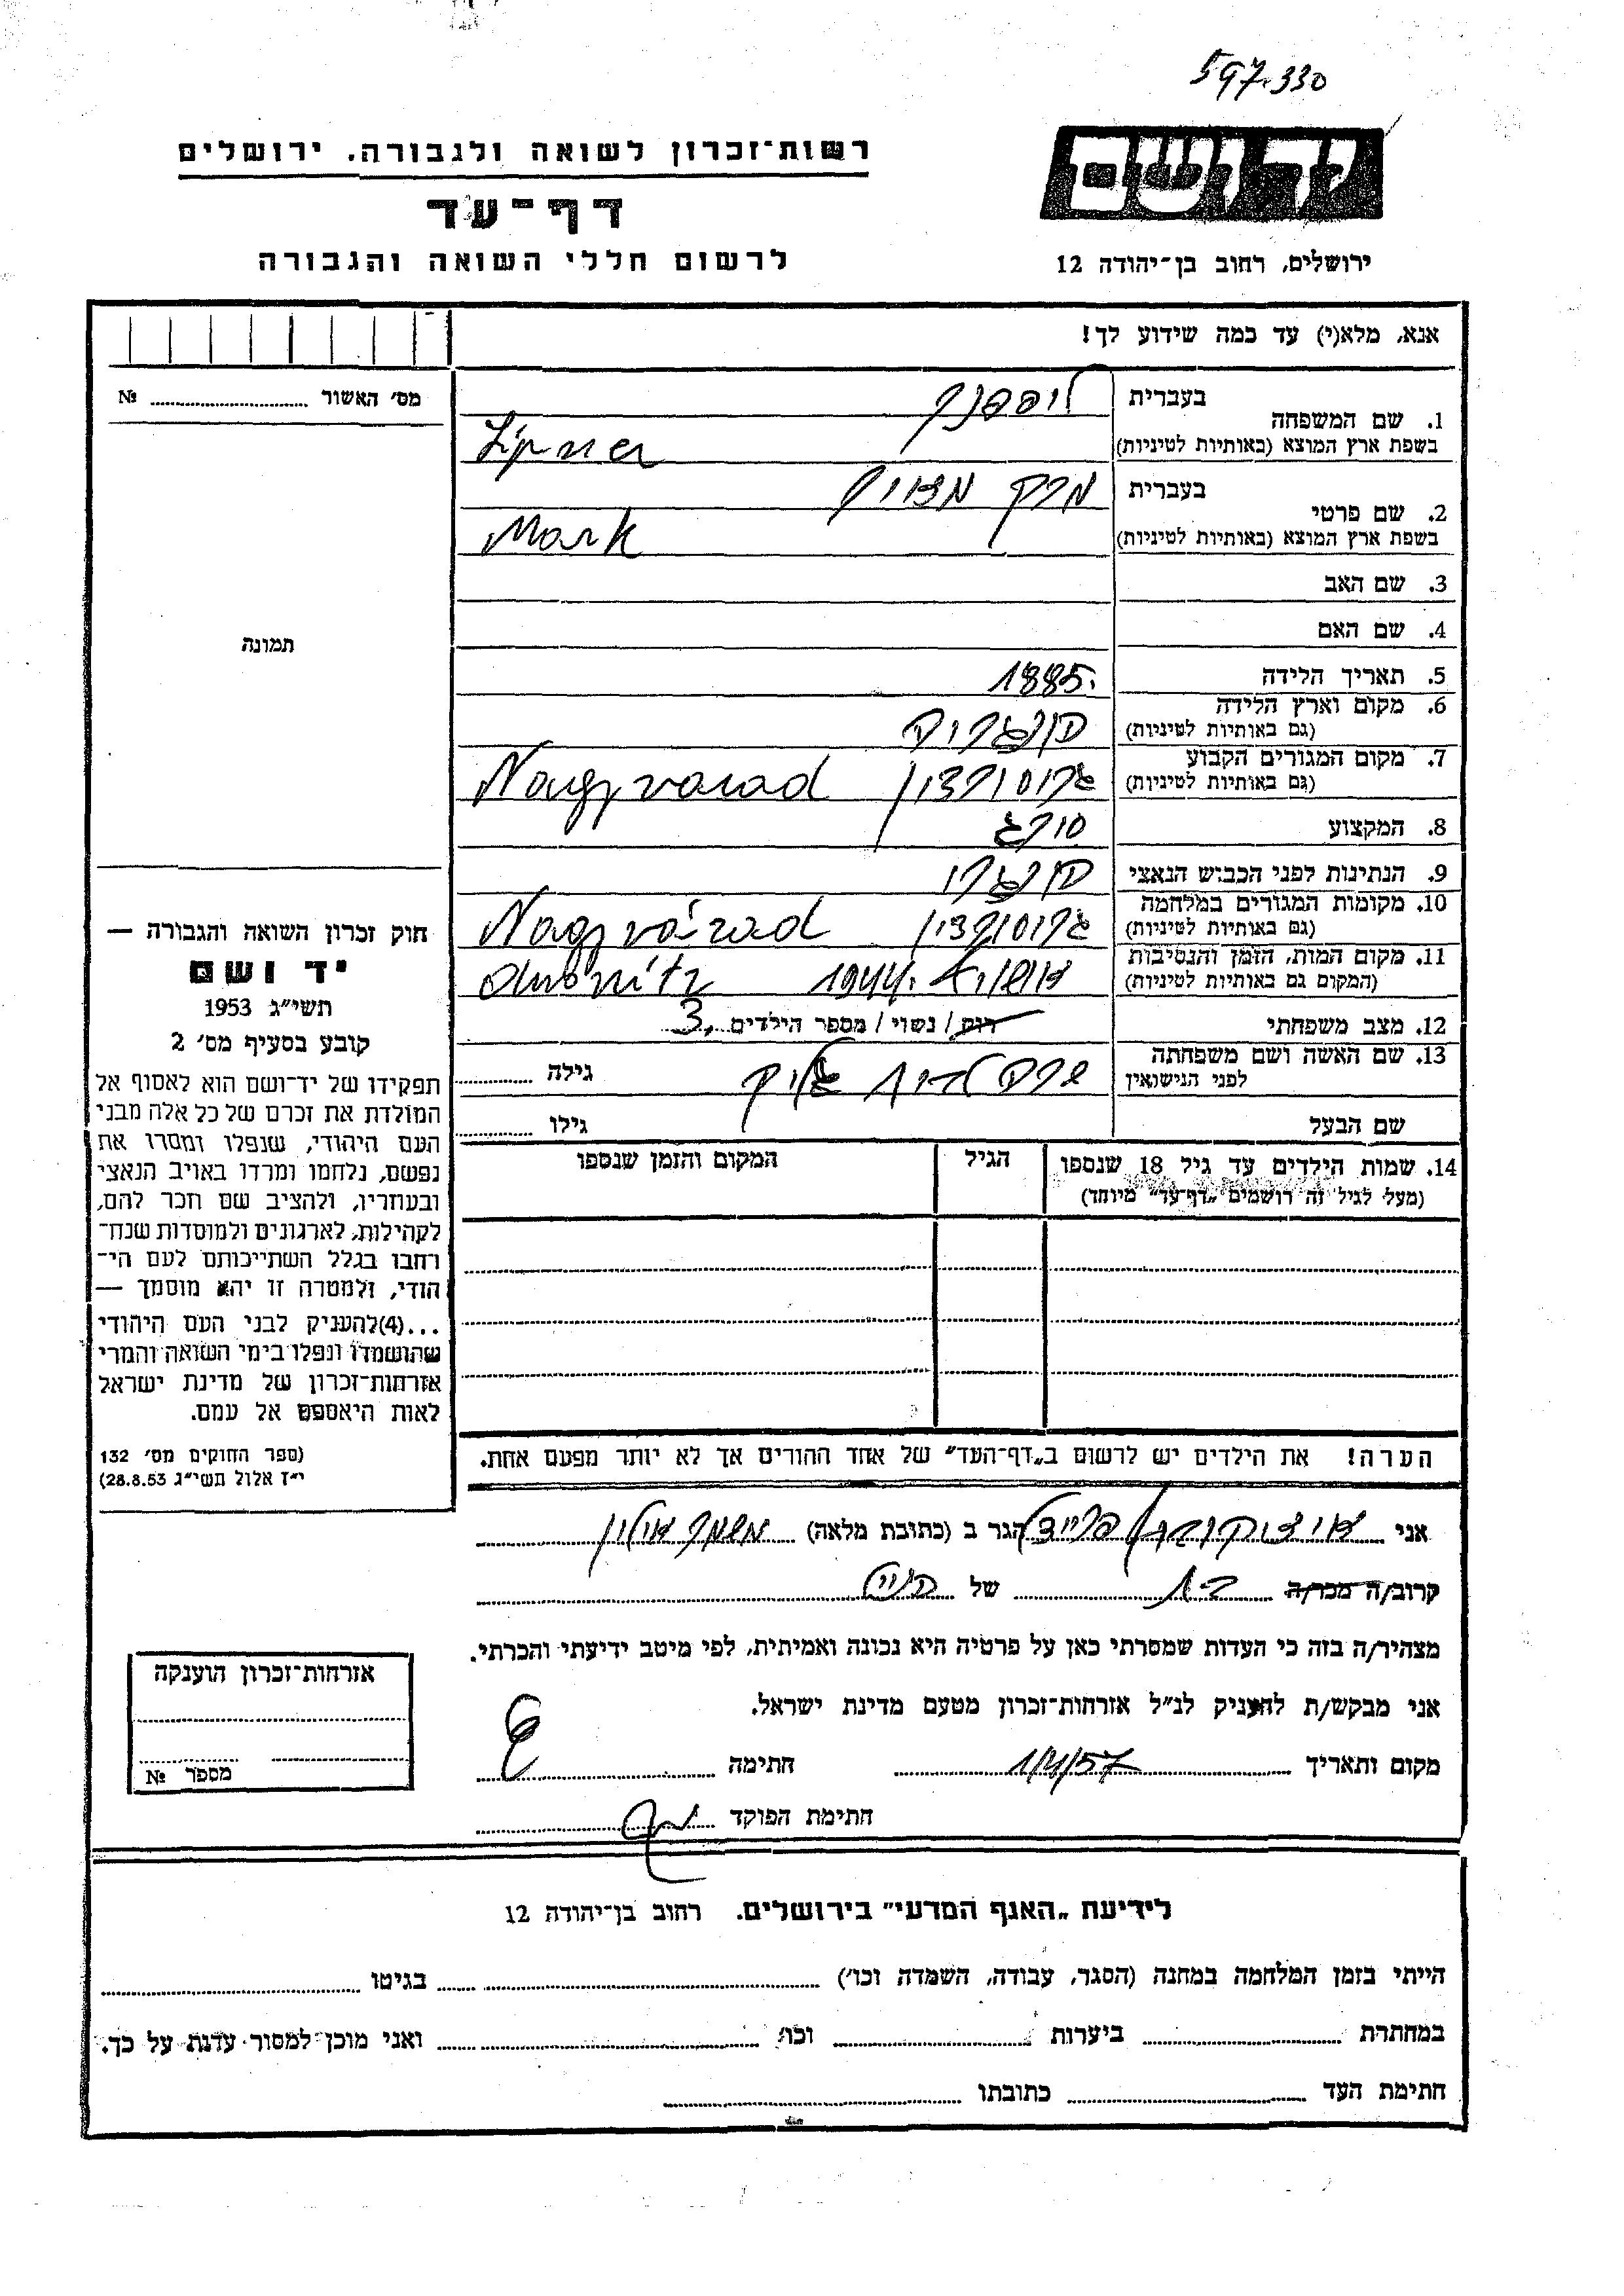 597.330
רשות־זכרון לשואה ולגבורה, ירושלים
דף־עד
לרשום חללי השואה והגבורה
יד ושם
ירושלים, רחוב בן־יהודה 12
אנא, מלא(י) עד כמה שידוע לך!
1. שם המשפחה
בעברית ליפפנר
בשפת ארץ המוצא (באותיות לטיניות) Lipner
2. שם פרטי
בעברית מרק
בשפת ארץ המוצא (באותיות לטיניות) Mark
3. שם האב
4. שם האם
5. תאריך הלידה 1885.
6. מקום וארץ הלידה
(גם באותיות לטיניות) הונגריה
7. מקום המגורים הקבוע
(גם באותיות לטיניות) גרוסורדיין Nagyvarad
8. המקצוע סוחר
9. הנתינות לפני הכבוש הנאצי הונגרי
10. מקומות המגורים במלחמה
(גם באותיות לטיניות) Nagyvárad
11. מקום המות, הזמן והנסיבות
(המקום גם באותיות לטיניות) 1944.
12. מצב משפחתי רוק / נשוי / מספר הילדים 3,
13. שם האשה ושם משפחתה
לפני הנישואין גילה
שם הבעל גילו
14. שמות הילדים עד גיל 18 שנספו
(מעל לגיל זה רושמים „דף־עד" מיוחד)
הגיל
המקום והזמן שנספו
הערה! את הילדים יש לרשום ב„דף־העד" של אחד ההורים אך לא יותר מפעם אחת.
מס׳ האשור №
תמונה
חוק זכרון השואה והגבורה —
יד ושם
תשי״ג 1953
קובע בסעיף מס׳ 2
תפקידו של יד־ושם הוא לאסוף אל
המולדת את זכרם של כל אלה מבני
העם היהודי, שנפלו ומסרו את
נפשם, נלחמו ומרדו באויב הנאצי
ובעוזריו, ולהציב שם וזכר להם,
לקהילות, לארגונים ולמוסדות שנח־
רחבו בגלל השתייכותם לעם הי־
הודי, ולמטרה זו יהא מוסמך —
...(4)להעניק לבני העם היהודי
שהושמדו ונפלו בימי השואה והמרי
אזרחות־זכרון של מדינת ישראל
לאות היאספם אל עמם.
(ספר החוקים מס׳ 132
י״ז אלול תשי״ג 28.8.53)
אני הגר ב (כתובת מלאה) משמר אילון
קרוב/ה מכר/ה של
מצהיר/ה בזה כי העדות שמסרתי כאן על פרטיה היא נכונה ואמיתית, לפי מיטב ידיעתי והכרתי.
אני מבקש/ת להעניק לנ״ל אזרחות־זכרון מטעם מדינת ישראל.
מקום ותאריך חתימה
חתימת הפוקד
אזרחות־זכרון הוענקה
מספר №
לידיעת „האגף המדעי" בירושלים. רחוב בן־יהודה 12
הייתי בזמן המלחמה במחנה (הסגר, עבודה, השמדה וכו׳) בגיטו
במחתרת ביערות וכו׳ ואני מוכן למסור עדות על כך.
חתימת העד כתובתו